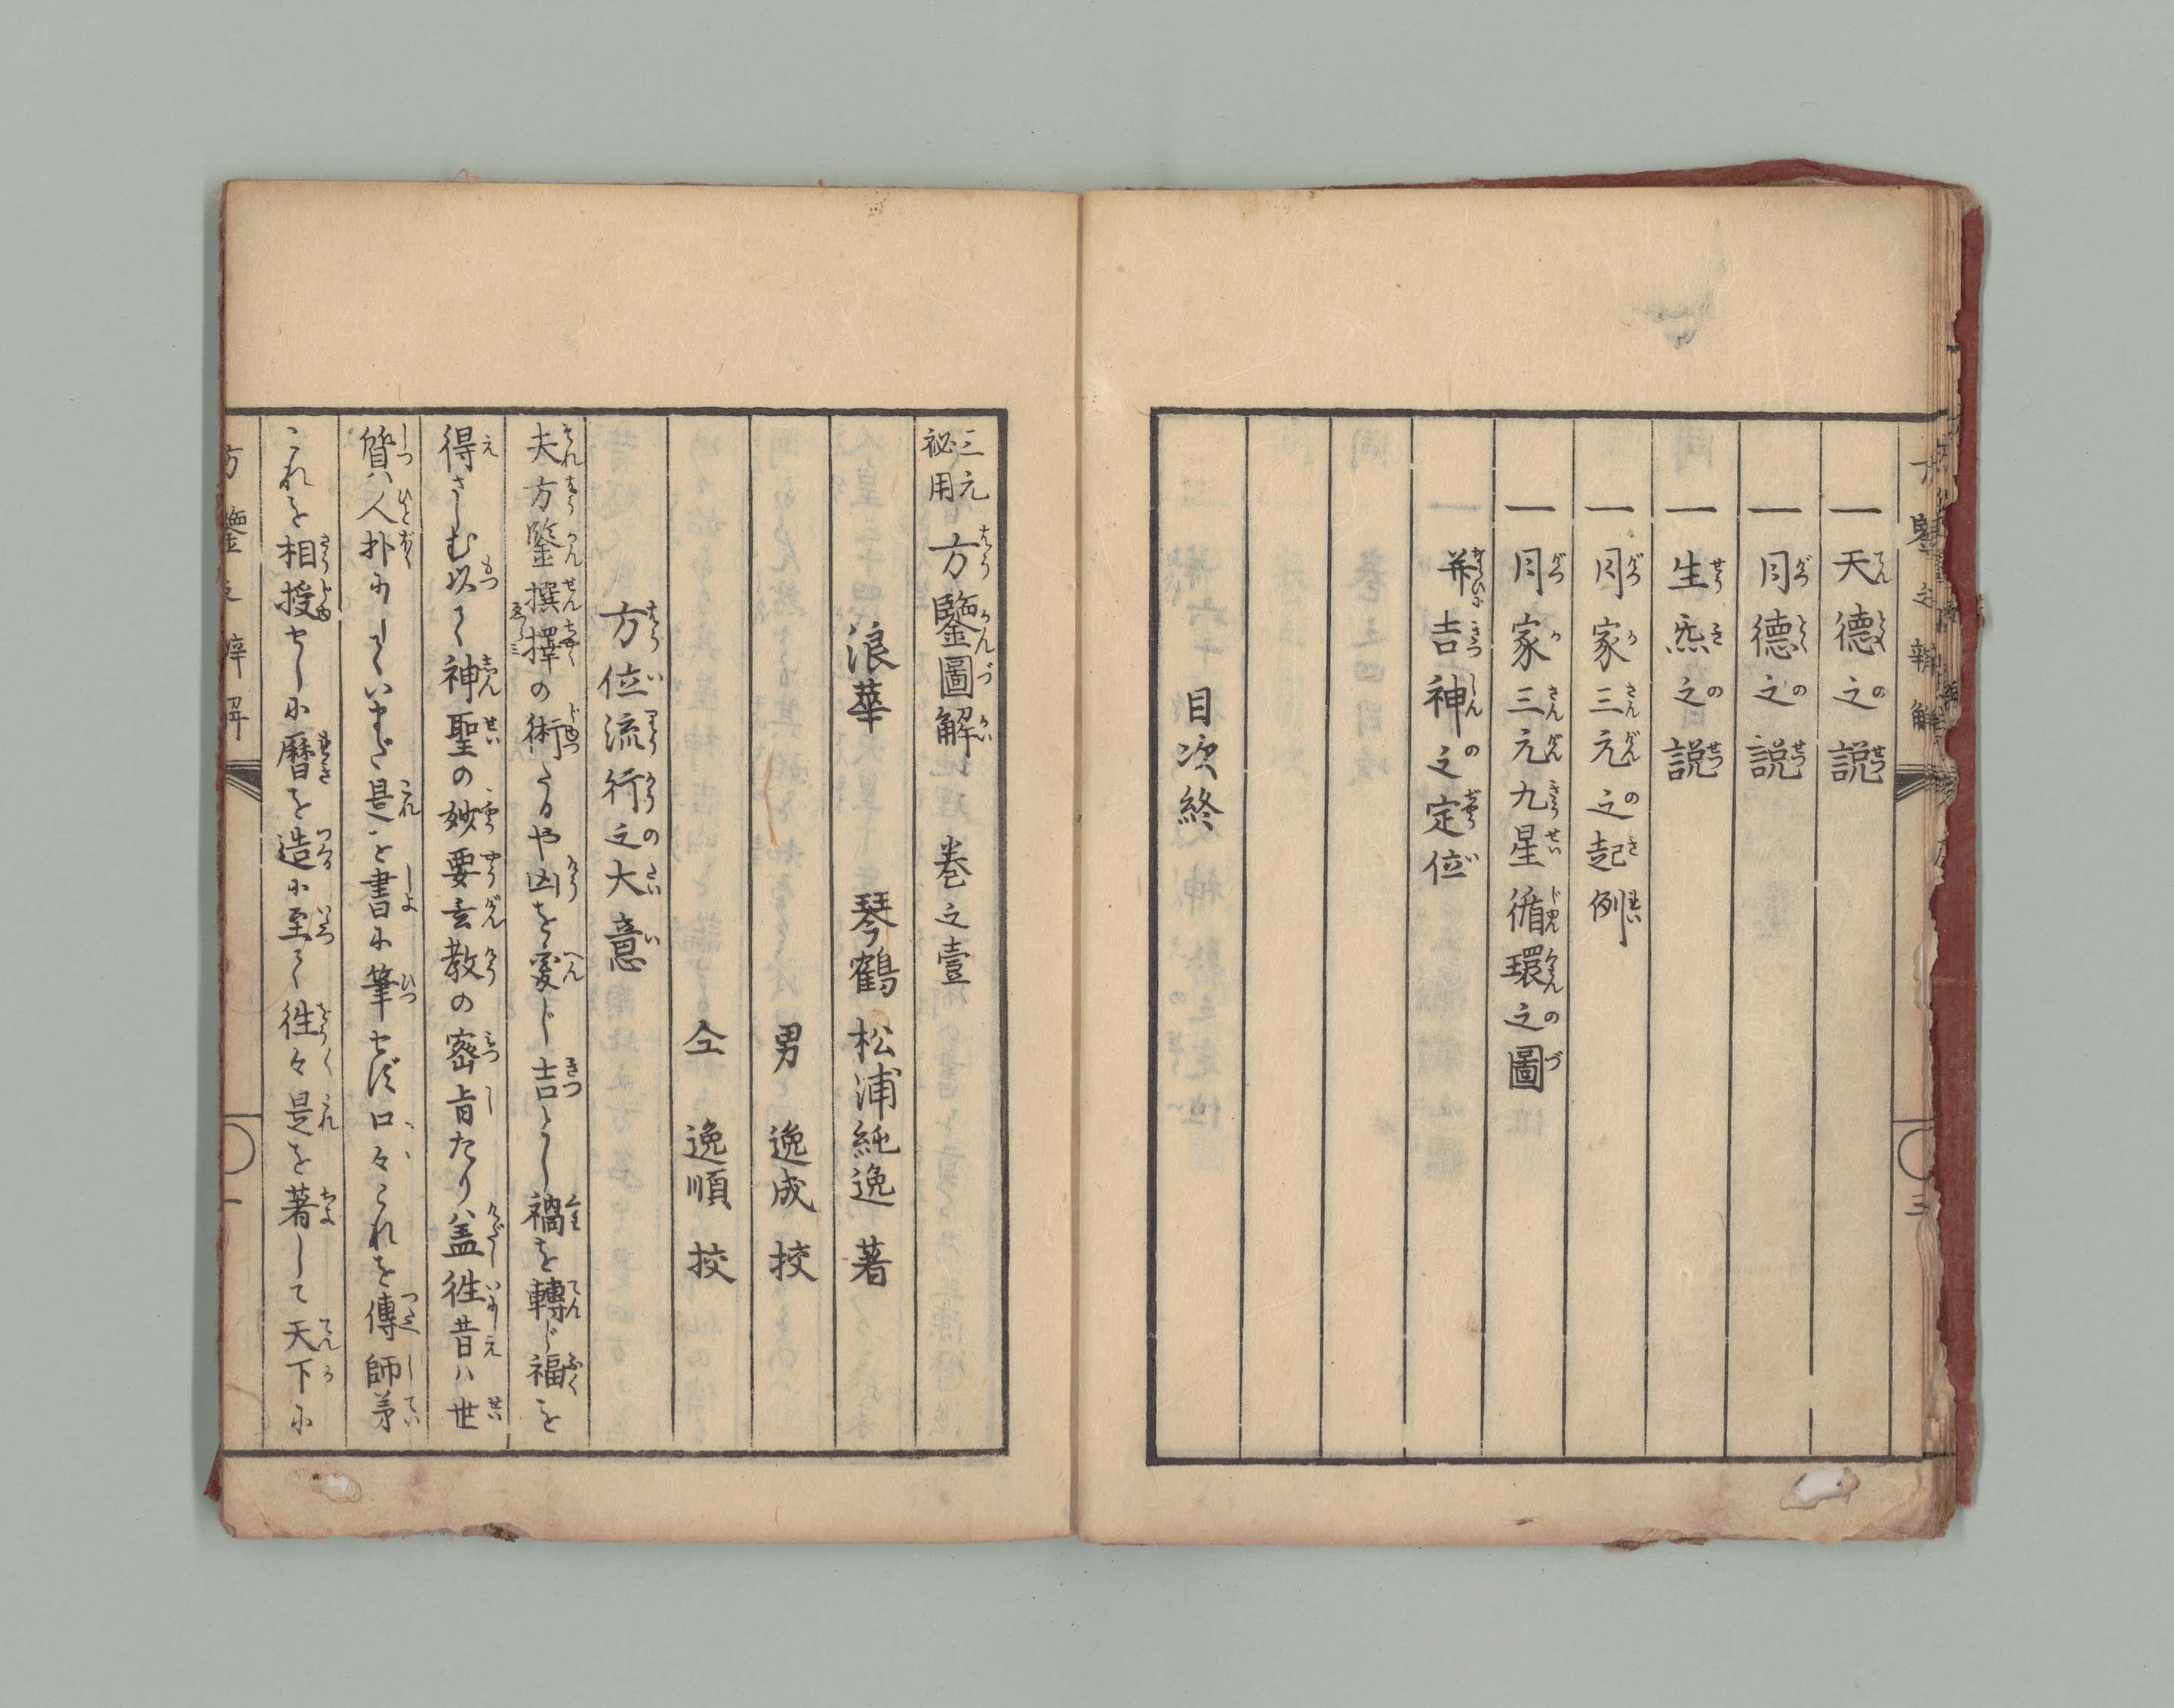 一 天德之説
一 月德之説
一 生炁之説
一 月家三元之起例
一 月家三元九星循環之圖
并吉神之定位
目次終
三元祕用 方鑒圖解 巻之壹
浪華 琴鶴 松浦純逸 著
男 逸成 挍
仝 逸順 挍
方位流行之大意
夫方鑒撰擇の術たるや凶を変じ吉とし禍を轉じ福を
得さしむ以て神聖の妙要玄教の密旨たり盖徃昔ハ世
質ハ人朴にしていまだ是を書に筆せず口々これを傳師弟
これを相授せしに暦を造に至て徃々是を著して天下に